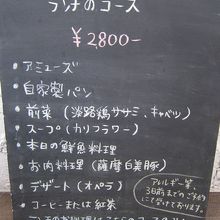 ランチのコース
¥2,800-
・アミューズ
・自家製パン
・前菜(淡路鶏ササミ、キャベツ)
・スープ(カリフラワー)
・本日の鮮魚料理
・お肉料理(薩摩白美豚)
・デザート(オペラ)
・コーヒーまたは紅茶
アレルギー等、
3日前までのご予約
にて受けております。